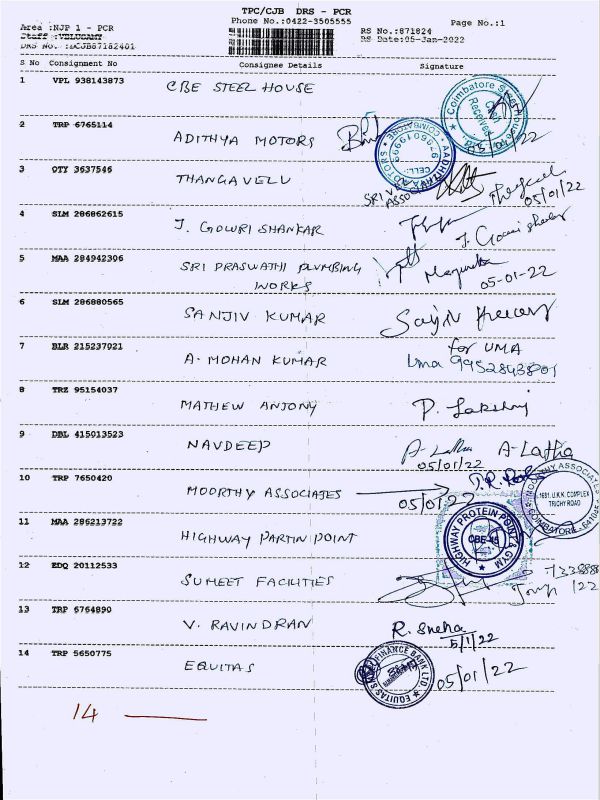 TPC/CJB DRS - PCR
Area :NJP 1 - PCR Phone No.:0422-3505555 Page No.:1
Staff :VELUSAMY RS No.:871824
DRS No. :DCJB87182401 RS Date:05-Jan-2022
S No Consignment No Consignee Details Signature
1 VPL 938143873 CBE STEEL HOUSE
Coimbatore Steel House
Received
05/01/22
2 TRP 6765114 ADITHYA MOTORS
AADHITHYAA MOTORS COIMBATORE
CELL: 9786019999
3 OTY 3637546 THANGAVELU
SRI V
ASSO
05/01/22
4 SLM 286862615 J. GOWRI SHANKAR J. Gowri shankar
5 MAA 284942306 SRI PRASWATHI PLUMBING
WORKS
05-01-22
6 SLM 286880565 SANJIV KUMAR
7 BLR 215237021 A. MOHAN KUMAR
for UMA
Uma
8 TRZ 95154037 MATHEW ANTONY P. Lakshmi
9 DBL 415013523 NAVDEEP A-Latha A-Latha
05/01/22
10 TRP 7650420 MOORTHY ASSOCIATES
05/01/22
MOORTHY ASSOCIATES
1691, U.K.K. COMPLEX
TRICHY ROAD
COIMBATORE - 641045
11 MAA 286213722 HIGHWAY PARTIN POINT
HIGHWAY PROTEIN POINT & GYM
CBE-45
12 EDQ 20112533 SUMEET FACILITIES
13 TRP 6764890 V. RAVINDRAN R. Sneha
5/1/22
14 TRP 5650775 EQUITAS
EQUITAS SMALL FINANCE BANK LTD.
05/01/22
14